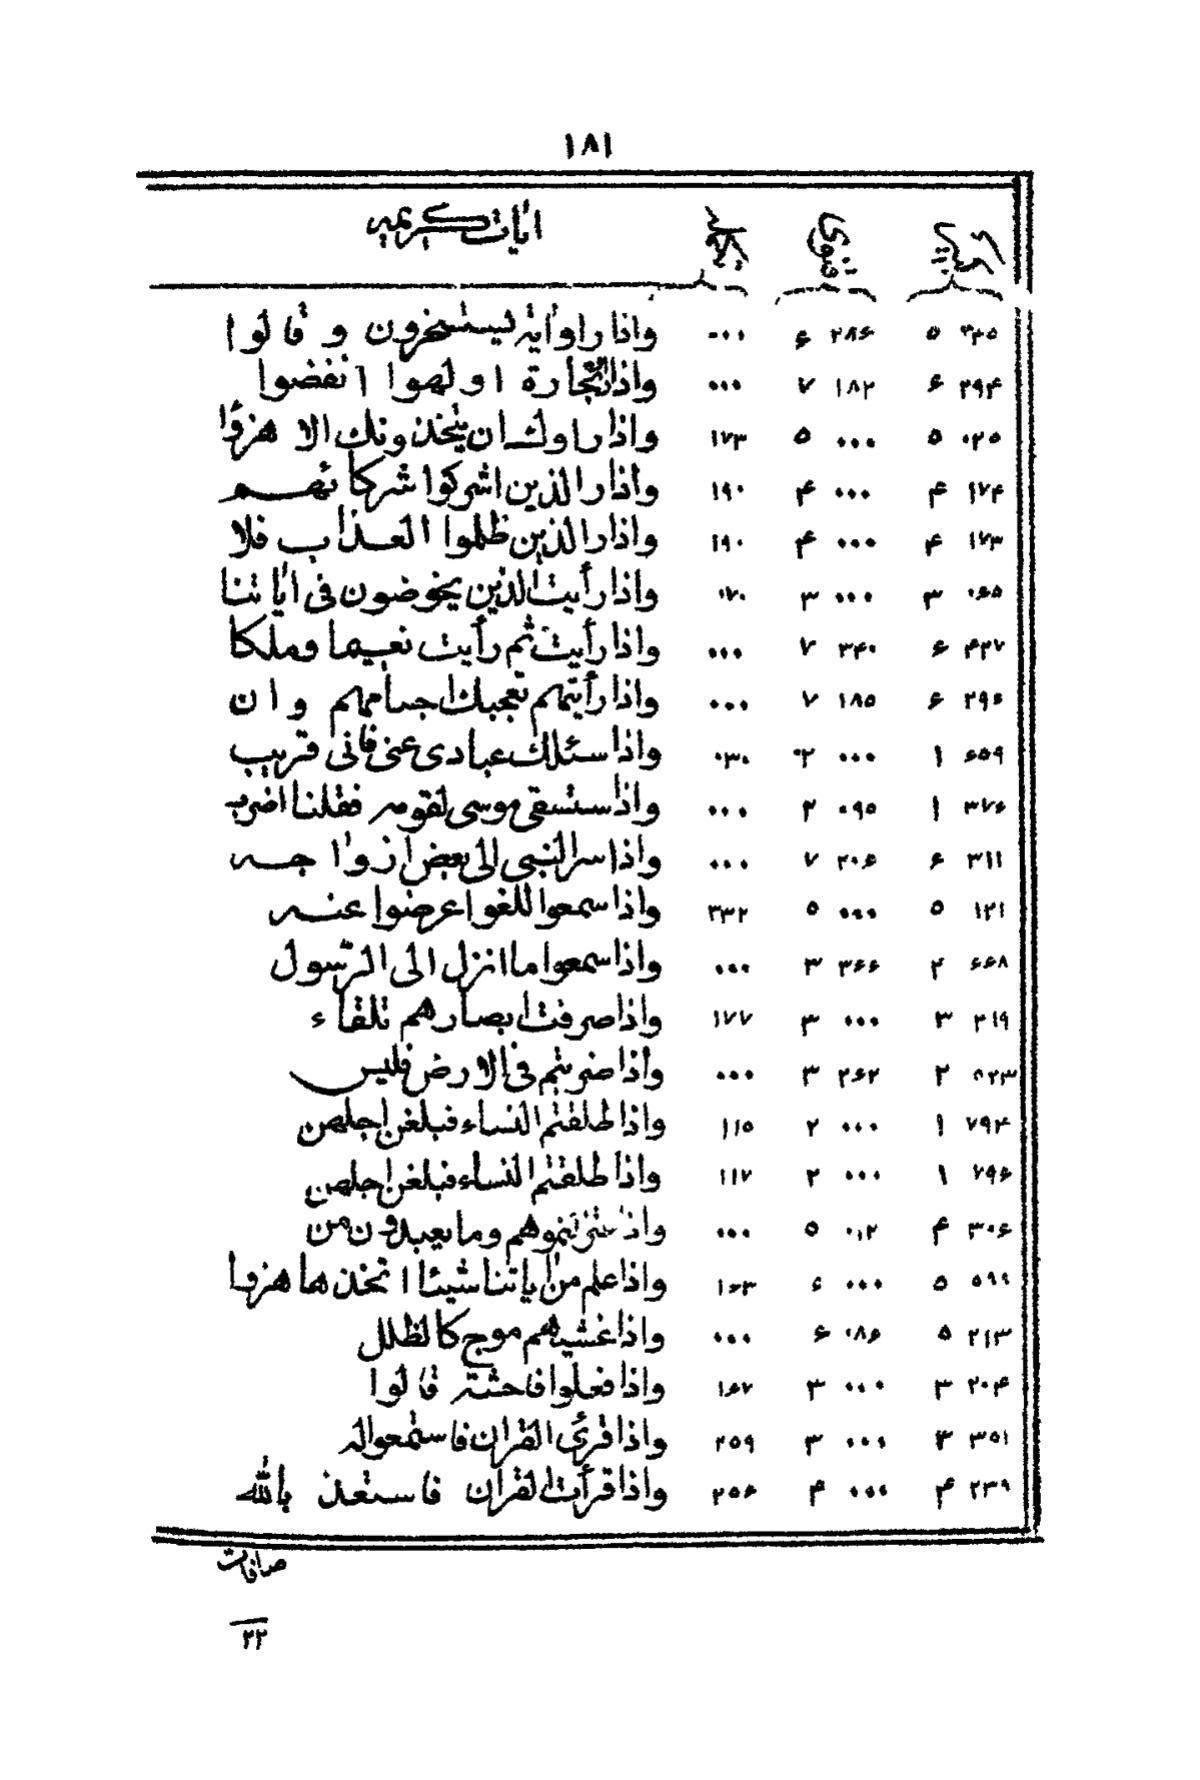 ١٨١
ایات کریمه
۵ ۲۸۶ ۶ ۰۰۰ واذا راوا آیة یستسخرون و قالوا
۲۹۴ ۶ ۱۸۲ ۷ ۰۰۰ واذا تجارة اولهوا انفضوا
۰۲۵ ۵ ۰۰۰ ۵ ۱۷۳ واذا راوك ان یتخذونك الا هزوًا
۱۷۴ ۴ ۰۰۰ ۴ ۱۹۰ واذا را الذین اشرکوا شرکائهم
۱۷۳ ۴ ۰۰۰ ۴ ۱۹۰ واذا را الذین ظلموا العذاب فلا
۰۶۵ ۳ ۰۰۰ ۳ ۰۷۰ واذا رأیت الذین یخوضون فی ایاتنا
۴۳۷ ۶ ۳۴۰ ۷ ۰۰۰ واذا رأیت ثم رأیت نعیما وملکا
۲۹۶ ۶ ۱۸۵ ۷ ۰۰۰ واذا رأیتهم تعجبك اجسامهم و ان
۶۵۹ ۱ ۰۰۰ ۲ ۰۳۰ واذا سئلك عبادی عنی فانی قریب
۳۷۶ ۱ ۰۹۵ ۲ ۰۰۰ واذا ستسقی موسی لقومه فقلنا اضرب
۳۱۱ ۶ ۲۰۶ ۷ ۰۰۰ واذا سر النبی الی بعض ازواجه
۱۲۱ ۵ ۰۰۰ ۵ ۳۳۲ واذا سمعوا اللغوا عرضوا عنه
۶۶۸ ۲ ۳۶۶ ۳ ۰۰۰ واذا سمعوا ما انزل الی الرّسول
۲۱۹ ۳ ۰۰۰ ۳ ۱۷۷ واذا صرفت ابصارهم تلقاء
۵۲۳ ۲ ۲۶۲ ۳ ۰۰۰ واذا ضربتم فی الارض فلیس
۷۹۴ ۱ ۰۰۰ ۲ ۱۱۵ واذا طلقتم النساء فبلغن اجلهن
۷۹۶ ۱ ۰۰۰ ۲ ۱۱۷ واذا طلقتم النساء فبلغن اجلهن
۳۰۶ ۴ ۰۱۲ ۵ ۰۰۰ واذ عتزلتموهم وما یعبدون من
۵۹۹ ۵ ۰۰۰ ۶ ۱۶۳ واذا علم من آیاتنا شیئا اتخذها هزوا
۲۱۳ ۵ ۰۸۶ ۶ ۰۰۰ واذا غشیهم موج کالظلل
۲۰۴ ۳ ۰۰۰ ۳ ۱۶۷ واذا فعلوا فاحشة قالوا
۳۵۱ ۳ ۰۰۰ ۳ ۲۵۹ واذا قرئ القران فاستمعوا له
۲۳۹ ۴ ۰۰۰ ۴ ۲۵۶ واذا قرأت القران فاستعذ بالله
صافات
۲۲